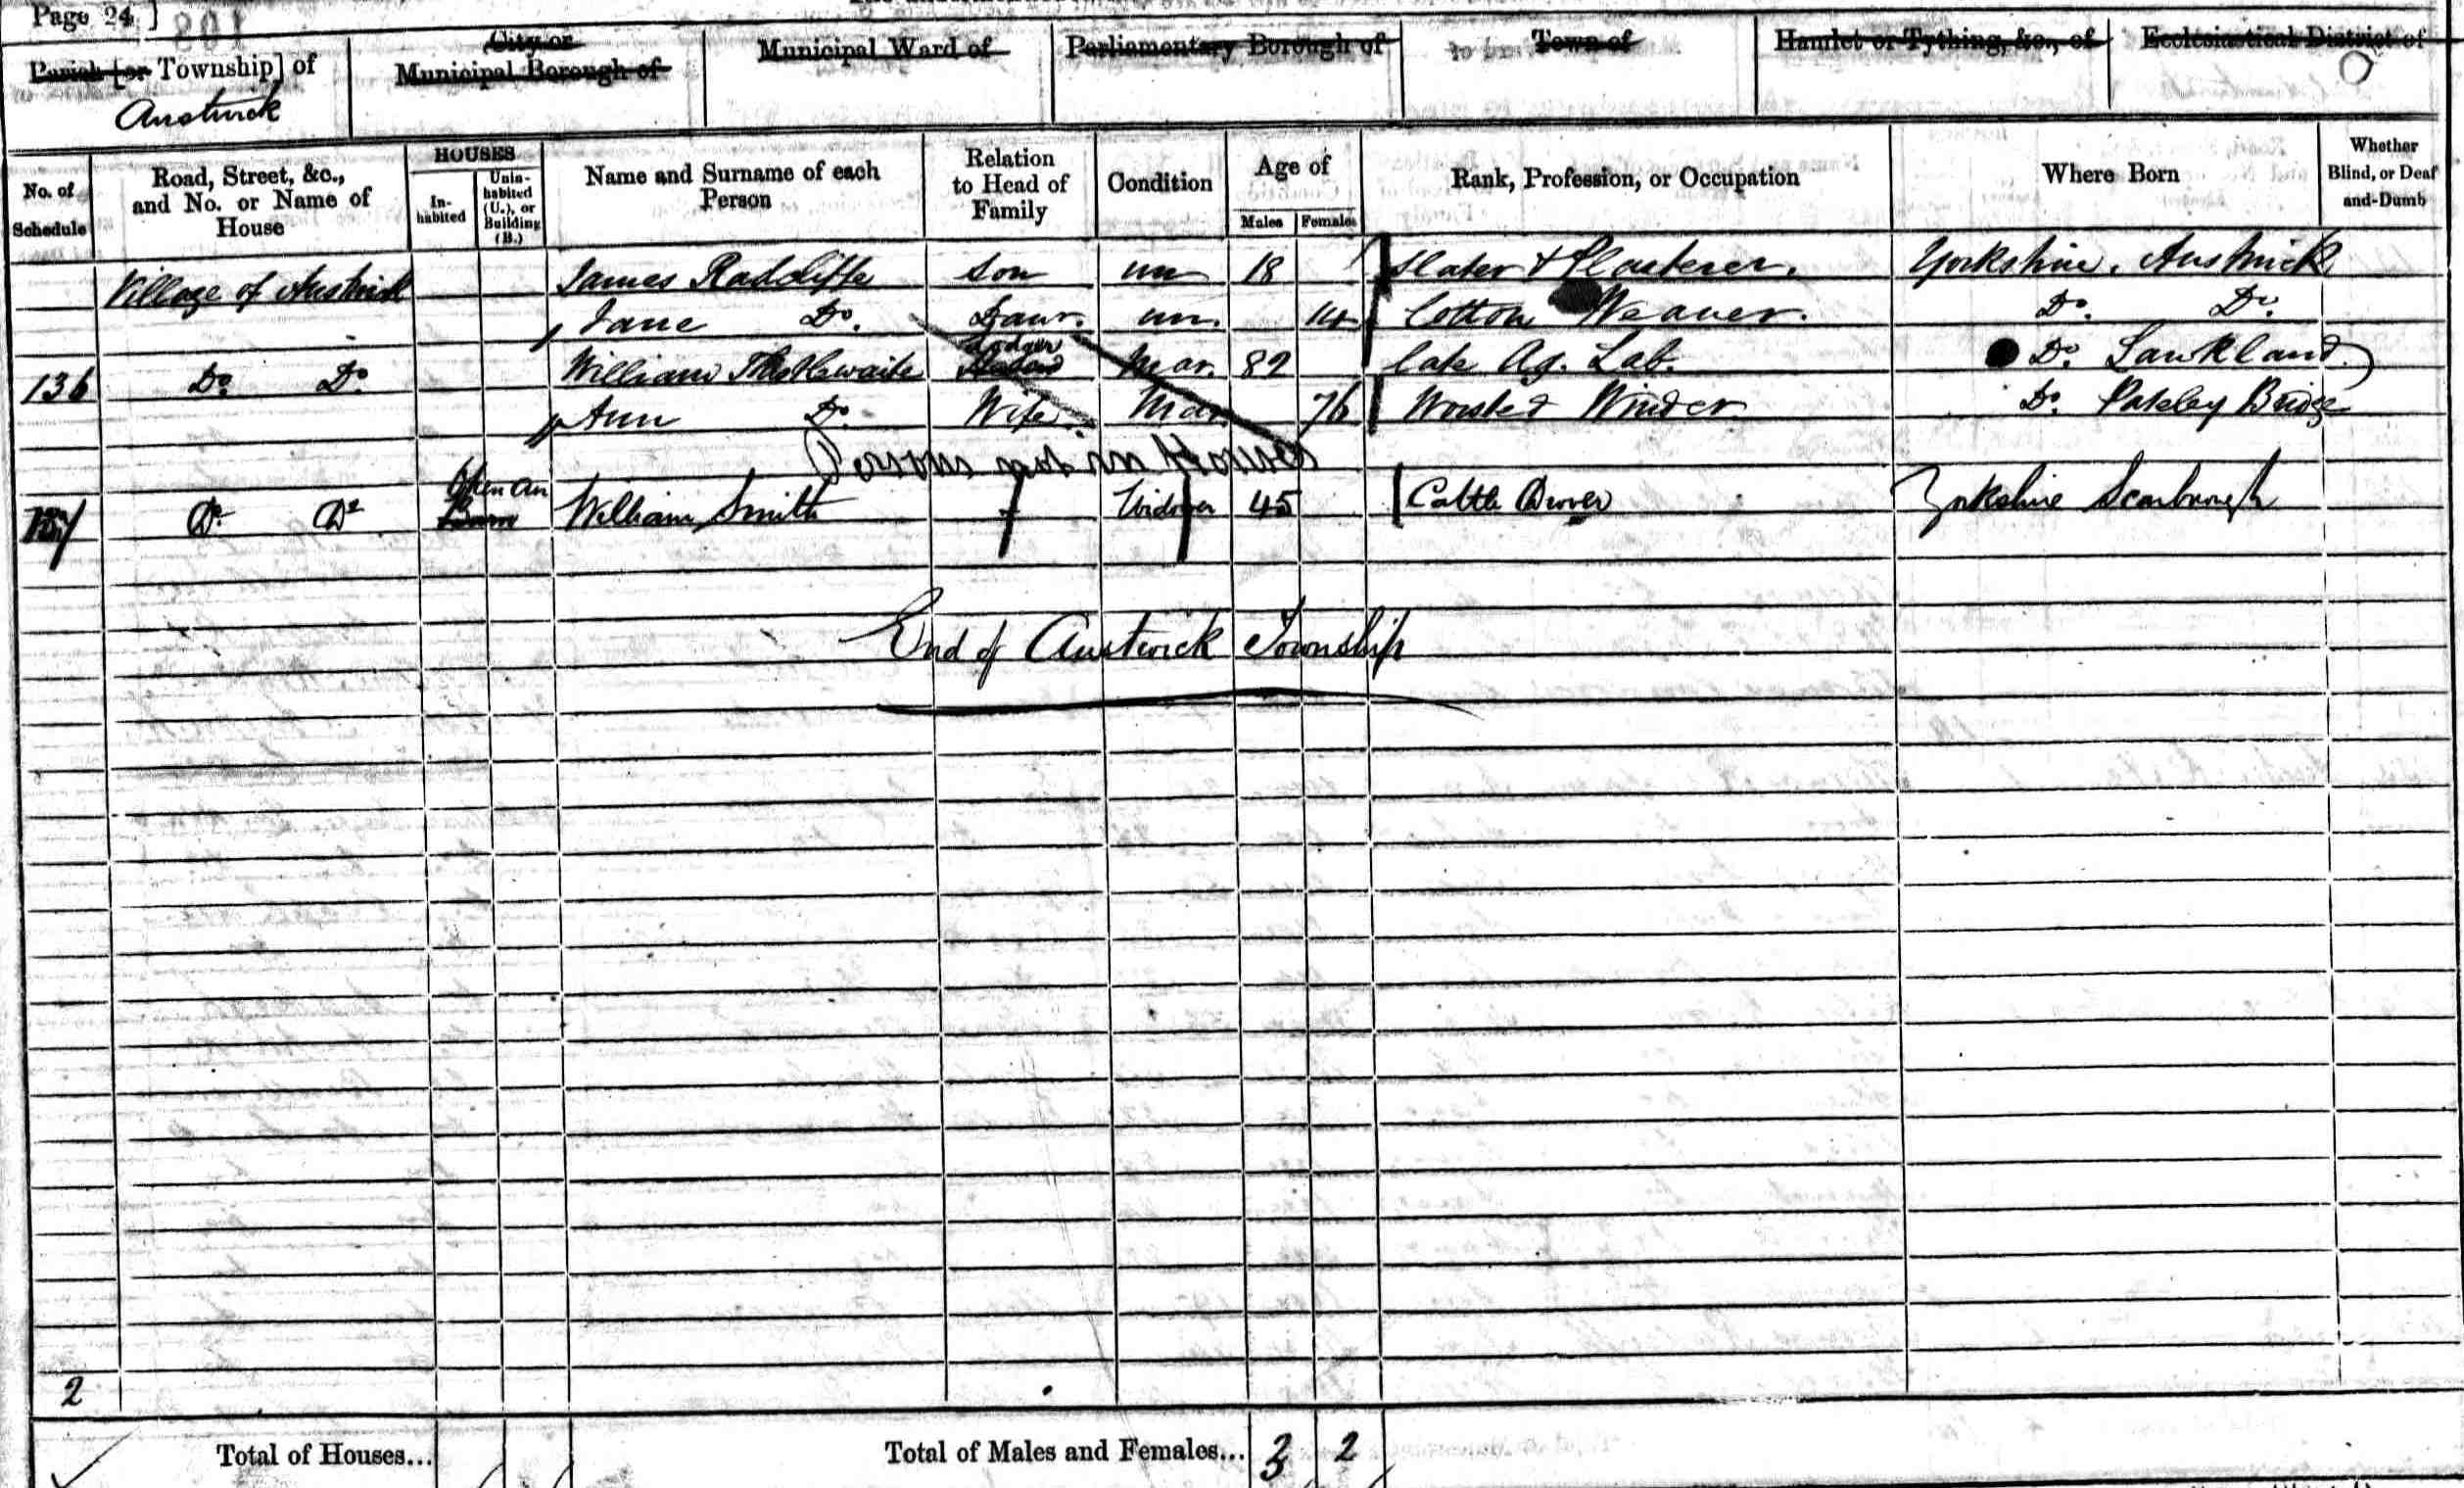 Page 24 ]
Parish [or Township] of
Austwick
City or
Municipal Borough of
Municipal Ward of
Parliamentary Borough of
Town of
Hamlet or Tything, &c., of
Ecclesiastical District of
No. of
Schedule
Road, Street, &c.,
and No. or Name of
House
HOUSES
In-
habited
Unin-
habited
(U.), or
Building
(B.)
Name and Surname of each
Person
Relation
to Head of
Family
Condition
Age of
Males
Females
Rank, Profession, or Occupation
Where Born
Whether
Blind, or Deaf
and-Dumb
Village of Austwick James Radcliffe Son un 18 Slater & Plasterer. Yorkshire. Austwick
Jane Do. Daur. un. 14 Cotton Weaver. Do. Do.
Lodger
136 Do. Do. William Mar. 82 late Ag. Lab. Do. Lawkland
Ann Do. Wife Mar 76 Worsted Winder Do. Pateley Bridge
Persons not in House
Open air
137 Do Do Barn William Smith Widower 45 Cattle Drover Yorkshire Scarbrough
End of Austwick Township
2
Total of Houses...
Total of Males and Females... 3 2